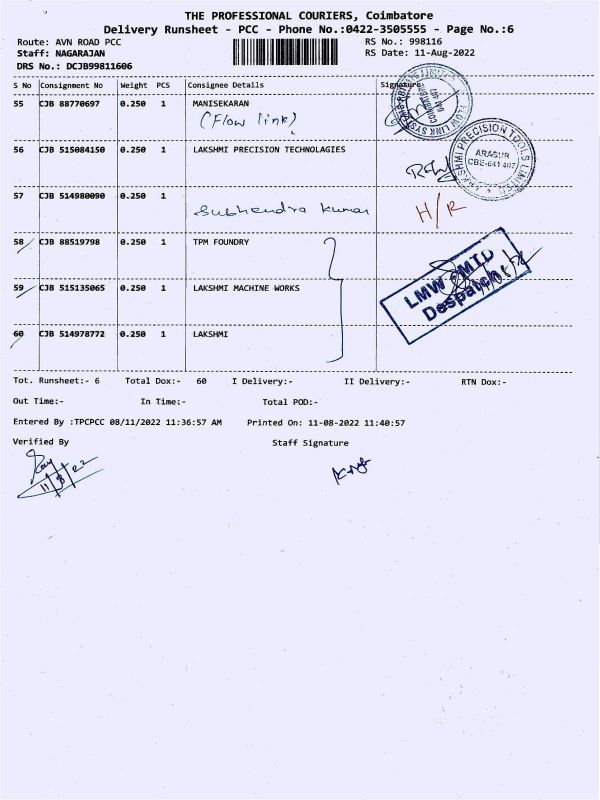 THE PROFESSIONAL COURIERS, Coimbatore
Delivery Runsheet - PCC - Phone No.:0422-3505555 - Page No.:6
Route: AVN ROAD PCC RS No.: 998116
Staff: NAGARAJAN RS Date: 11-Aug-2022
DRS No.: DCJB99811606
S No Consignment No Weight PCS Consignee Details Signature
55 CJB 88770697 0.250 1 MANISEKARAN
(Flow link)
56 CJB 515084150 0.250 1 LAKSHMI PRECISION TECHNOLAGIES
LAKSHMI PRECISION TOOLS LIMITED
ARASUR
CBE-641 407
57 CJB 514980090 0.250 1
Subhendra Kumar H/R
58 CJB 88519798 0.250 1 TPM FOUNDRY
59 CJB 515135065 0.250 1 LAKSHMI MACHINE WORKS
LMW
Despatch
60 CJB 514978772 0.250 1 LAKSHMI
Tot. Runsheet:- 6 Total Dox:- 60 I Delivery:- II Delivery:- RTN Dox:-
Out Time:- In Time:- Total POD:-
Entered By :TPCPCC 08/11/2022 11:36:57 AM Printed On: 11-08-2022 11:40:57
Verified By Staff Signature
11/8/22